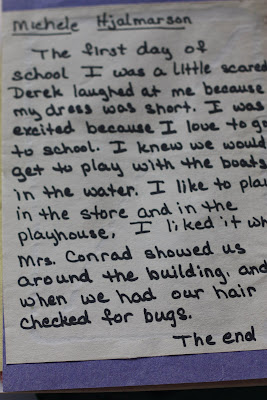 Michele Hjalmarson
The first day of
school I was a little scared
Derek laughed at me because
my dress was short. I was
excited because I love to go
to school. I knew we would
get to play with the boats
in the water. I like to play
in the store and in the
playhouse, I liked it wh
Mrs. Conrad showed us
around the building, and
when we had our hair
checked for bugs.
The end